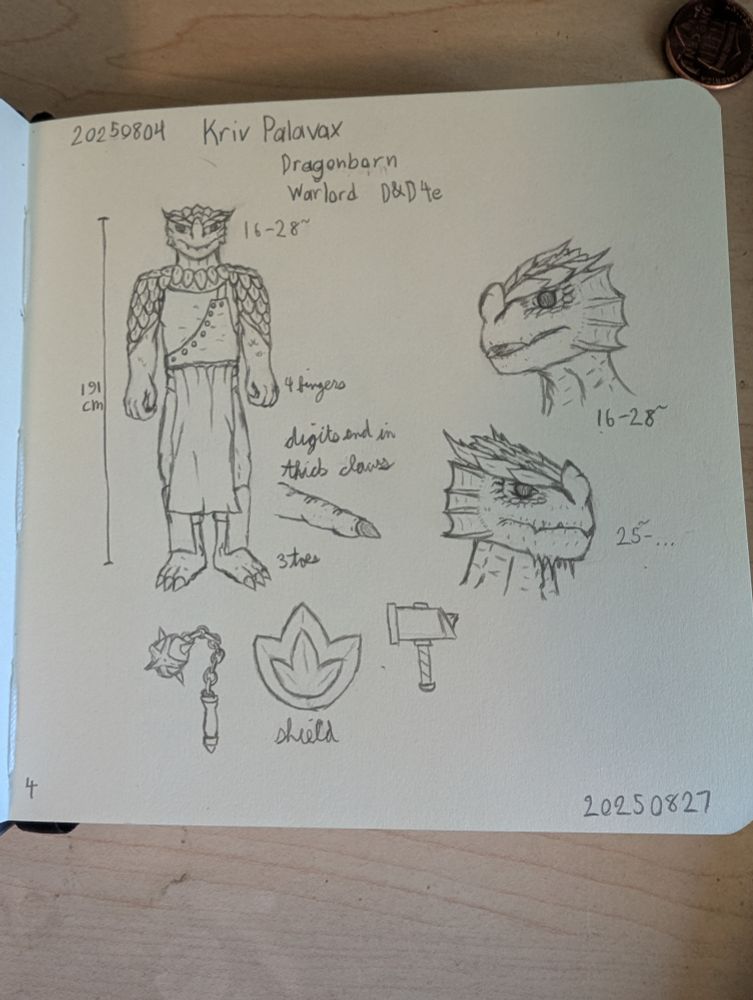 20250804 Kriv Palavax
Dragonborn
Warlord D&D4e
16-28~
191
cm
4 fingers
digits end in
thick claws
3 toes
16-28~
25~-...
shield
4
20250827